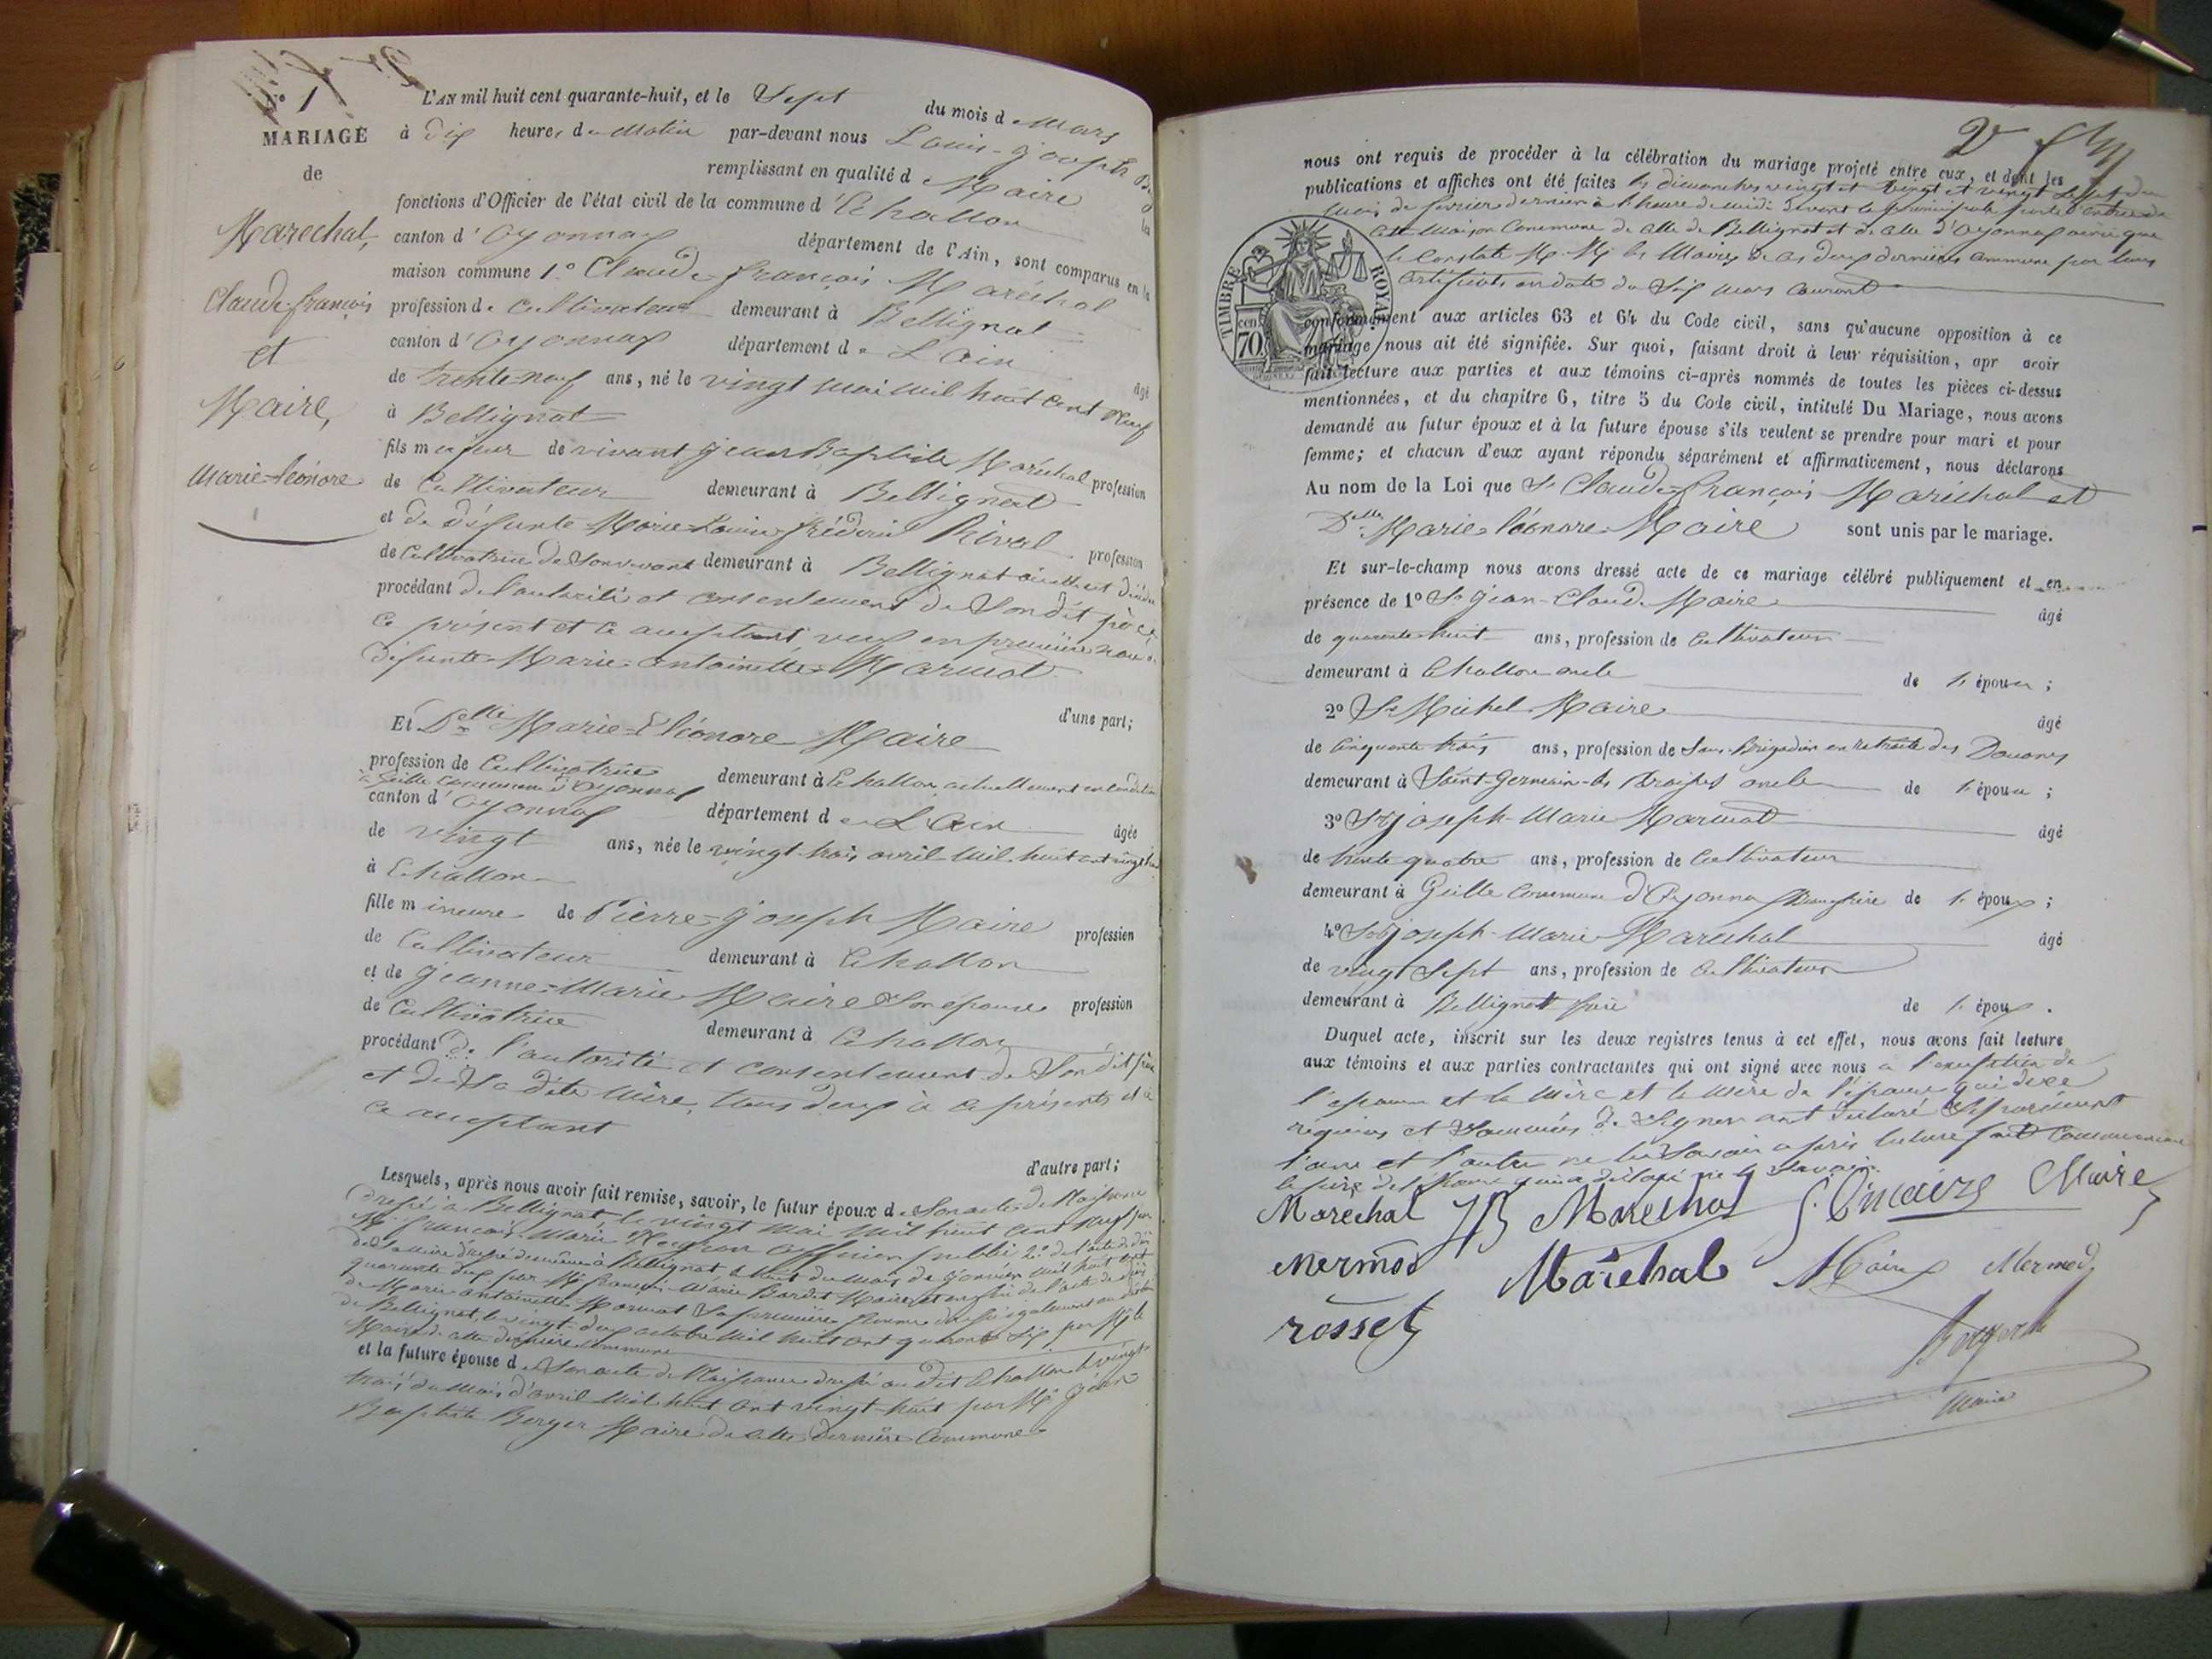 N° 1
MARIAGE
de
Marechal,
Claude-françois
et
Maire,
Marie-léonore
L'AN mil huit cent quarante-huit, et le Sept du mois de Mars
à dix heures du Matin par-devant nous Louis-joseph
remplissant en qualité de Maire
fonctions d'Officier de l'état civil de la commune d'Echallon
canton d'Oyonnax département de l'Ain, sont comparus en la
maison commune 1.° Claude-françois Maréchal
profession de Cultivateur demeurant à Bellignat
canton d'Oyonnax département de L'Ain âgé
de trente-neuf ans, né le vingt mai mil huit cent Neuf
à Bellignat
fils majeur de vivant Jean Baptiste Maréchal profession
de Cultivateur demeurant à Bellignat
et de défunte Marie-Louise frédérice Rival profession
de Cultivatrice de Son vivant demeurant à Bellignat où elle est décédée
procédant de l'autorité et consentement de Son dit père
à ce présent et ce acceptant, veuf en première noce de
défunte Marie-antoinette Marmot
d'une part;
Et Delle Marie-Eléonore Maire
profession de Cultivatrice demeurant à Echallon actuellement en
à Geille commune d'Oyonnax
canton d'Oyonnax département de L'Ain âgée
de vingt ans, née le vingt-trois avril mil huit cent vingt huit
à Echallon
fille mineure de Pierre-joseph Maire profession
de Cultivateur demeurant à Echallon
et de Jeanne-Marie Maire Son épouse profession
de Cultivatrice demeurant à Echallon
procédant de l'autorité et consentement de Son dit père
et de Sa dite Mère, tous deux à ce présents et à
ce acceptant
d'autre part;
Lesquels, après nous avoir fait remise, savoir, le futur époux de Son acte de Naissance
Dressé à Bellignat, le vingt Mai mil huit cent neuf par
M. françois-Marie officier public 2.° de l'acte de décès
de Sa mère dressé de même à Bellignat, le huit du mois de janvier mil huit cent
quarante deux par M. françois-Marie Bardet Maire, et enfin de l'acte de décès
de Marie antoinette Marmot Sa première femme dressé également
de Bellignat, le vingt-deux octobre mil huit cent quarante Six par M. le
Maire de cette dernière Commune
et la future épouse de Son acte de Naissance dressé au dit Echallon le vingt-
trois du Mois d'avril Mil huit cent vingt-huit par M. Jean
Baptiste Berger Maire de cette dernière Commune
nous ont requis de procéder à la célébration du mariage projeté entre eux, et dont les
publications et affiches ont été faites les dimanches vingt et vingt Sept du
Mois de février dernier à l'heure de midi devant la principale porte d'entrée de
cette Maison Commune de celle de Bellignat et de celle d'Oyonnax ainsi que
le Constate M. M. les Maires de ces deux dernières Commune par leurs
Certificats en date du Six Mars Courant
TIMBRE ROYAL
cen. 70
conformément aux articles 63 et 64 du Code civil, sans qu'aucune opposition à ce
mariage nous ait été signifiée. Sur quoi, faisant droit à leur réquisition, apr avoir
fait lecture aux parties et aux témoins ci-après nommés de toutes les pièces ci-dessus
mentionnées, et du chapitre 6, titre 5 du Code civil, intitulé Du Mariage, nous avons
demandé au futur époux et à la future épouse s'ils veulent se prendre pour mari et pour
femme; et chacun d'eux ayant répondu séparément et affirmativement, nous déclarons
Au nom de la Loi que Sr Claude-françois Maréchal et
Delle Marie léonore Maire sont unis par le mariage.
Et sur-le-champ nous avons dressé acte de ce mariage célébré publiquement et en
présence de 1° Sr Jean-Claude Maire âgé
de quarante-huit ans, profession de Cultivateur
demeurant à Echallon oncle de l'épouse ;
2° Sr Michel Maire âgé
de Cinquante trois ans, profession de Sous-Brigadier en retraite des Douanes
demeurant à Saint-Germain-les Paroisses oncle de l'épouse ;
3° Sr joseph-Marie Marmot âgé
de trente quatre ans, profession de Cultivateur
demeurant à Geille Commune d'Oyonnax Beau frère de l'époux ;
4° Sr joseph-Marie Maréchal âgé
de vingt Sept ans, profession de Cultivateur
demeurant à Bellignat frère de l'époux .
Duquel acte, inscrit sur les deux registres tenus à cet effet, nous avons fait lecture
aux témoins et aux parties contractantes qui ont signé avec nous a l'exception de
l'épouse et la Mère et le Mère de l'épouse qui de ce
requises et Sommées de Signer ont déclaré Séparément
l'une et l'autre ne le Savoir après lecture fait
le père de l'épouse qui a déclaré ne Savoir.
Marechal JB Marechal Maire
Mermod Maréchal Maire Mermod
rosset
Maire